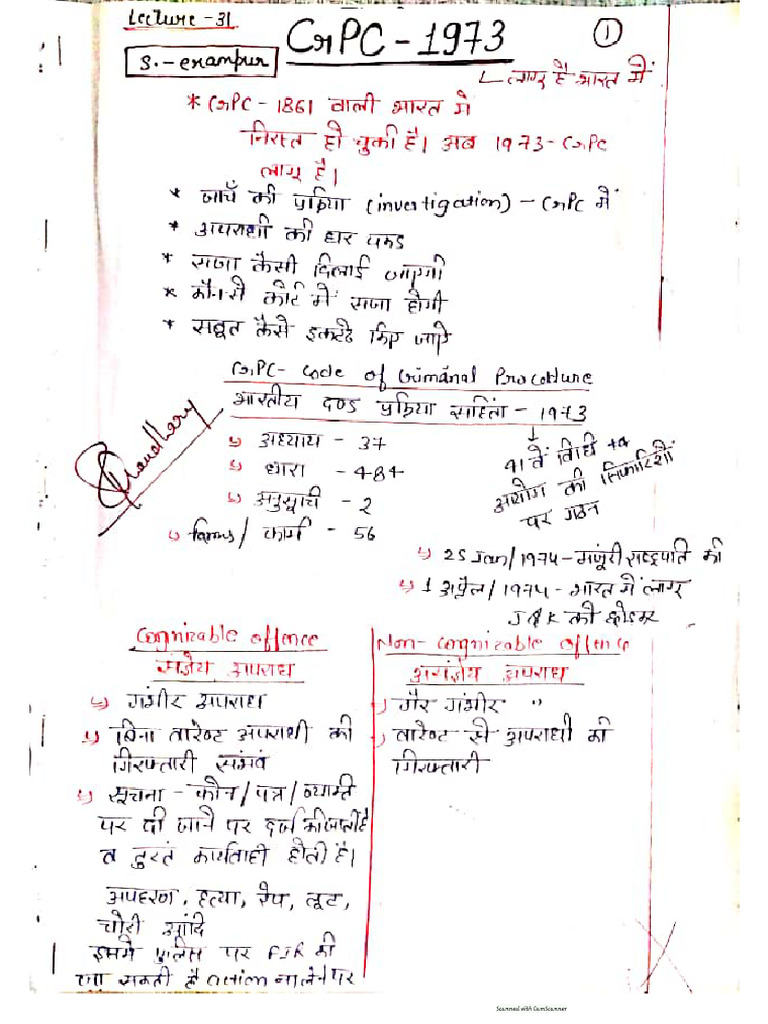 Lecture - 31
CrPC - 1973
1
S.-
लागू है भारत में
* CrPC - 1861 वाली भारत मे
निरस्त हो चुकी है। अब 1973 - CrPC
लागू है।
* जाचँ की प्रक्रिया (investigation) - CrPC में
* अपराधी की धर पकड
* सजा कैसी दिलाई जाएगी
* कौनसे कोर्ट में सजा होगी
* सबूत कैसे इकट्ठे किए जाऐ
CrPC - Code of Criminal Procedure
भारतीय दण्ड प्रक्रिया सहिंता - 1973
Choudhary
अध्याय - 37
धारा - 484
अनुसूची - 2
forms / फार्म - 56
41 वें विधि
आयोग की सिफारिशों
पर गठन
25 Jan / 1974 - मंजूरी राष्ट्रपति की
1 अप्रैल / 1974 - भारत में लागू
J & K को छोडकर
Cognizable offence
संज्ञेय अपराध
गंभीर अपराध
बिना वारेण्ट अपराधी की
गिरफ्तारी संभव
सूचना - फोन / पत्र / व्यक्ति
पर दी जाने पर दर्ज की जाती है
व तुरतं कार्यवाही होती है।
अपहरण, हत्या, रेप, लूट,
चोरी आदि
इसमे पुलिस पर FIR की
जा सकती है action ना लेने पर
Non - Cognizable offence
असंज्ञेय अपराध
गैर गंभीर "
वारेण्ट से अपराधी की
गिरफ्तारी
Scanned with CamScanner